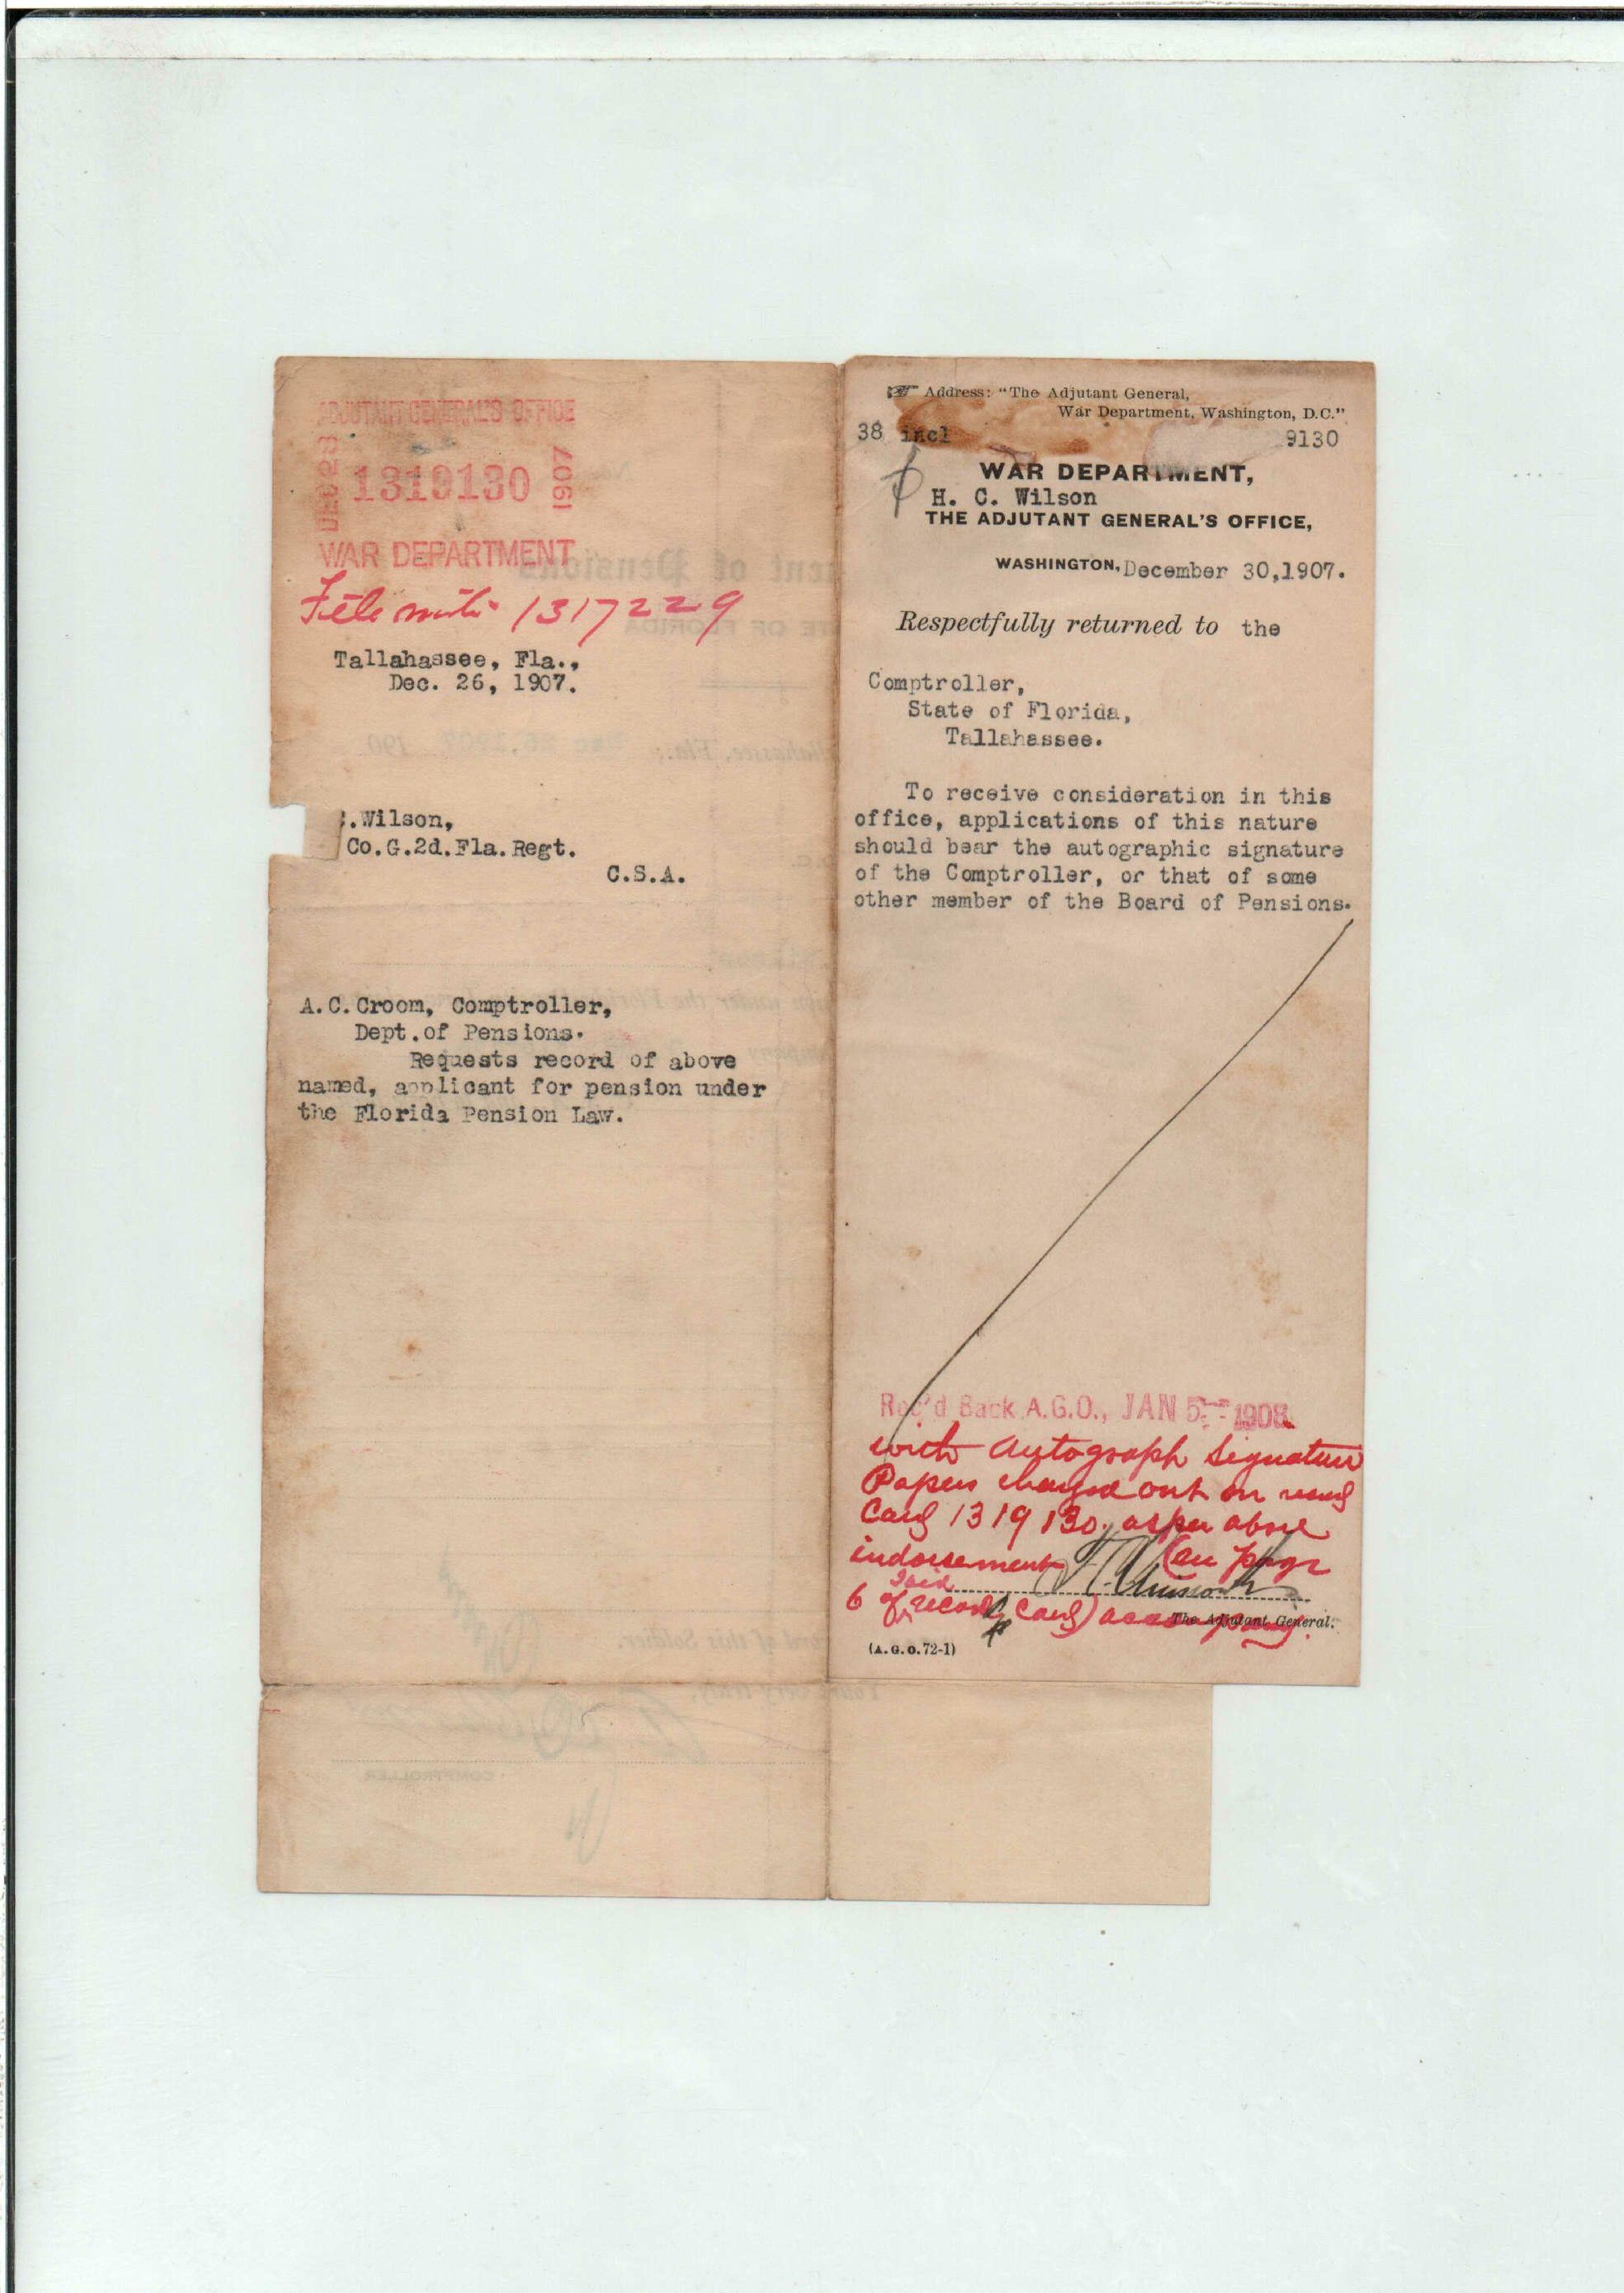 ADJUTANT GENERAL'S OFFICE
DEC 28
1319130
1907
WAR DEPARTMENT
File with 1317229
Tallahassee, Fla.,
Dec. 26, 1907.
C.Wilson,
Co.G.2d.Fla.Regt.
C.S.A.
A.C.Croom, Comptroller,
Dept.of Pensions.
Requests record of above
named, applicant for pension under
the Florida Pension Law.
Address: "The Adjutant General,
War Department, Washington, D.C."
38 incl 9130
WAR DEPARTMENT,
H. C. Wilson
THE ADJUTANT GENERAL'S OFFICE,
WASHINGTON, December 30,1907.
Respectfully returned to the
Comptroller,
State of Florida,
Tallahassee.
To receive consideration in this
office, applications of this nature
should bear the autographic signature
of the Comptroller, or that of some
other member of the Board of Pensions.
Rec'd Back A.G.O., JAN 5 1908
with autograph signature
Papers charged out on
Card 1319130. as per above
indorsement (on page
6 of said record card)
The Adjutant General.
(A.G.O.72-1)